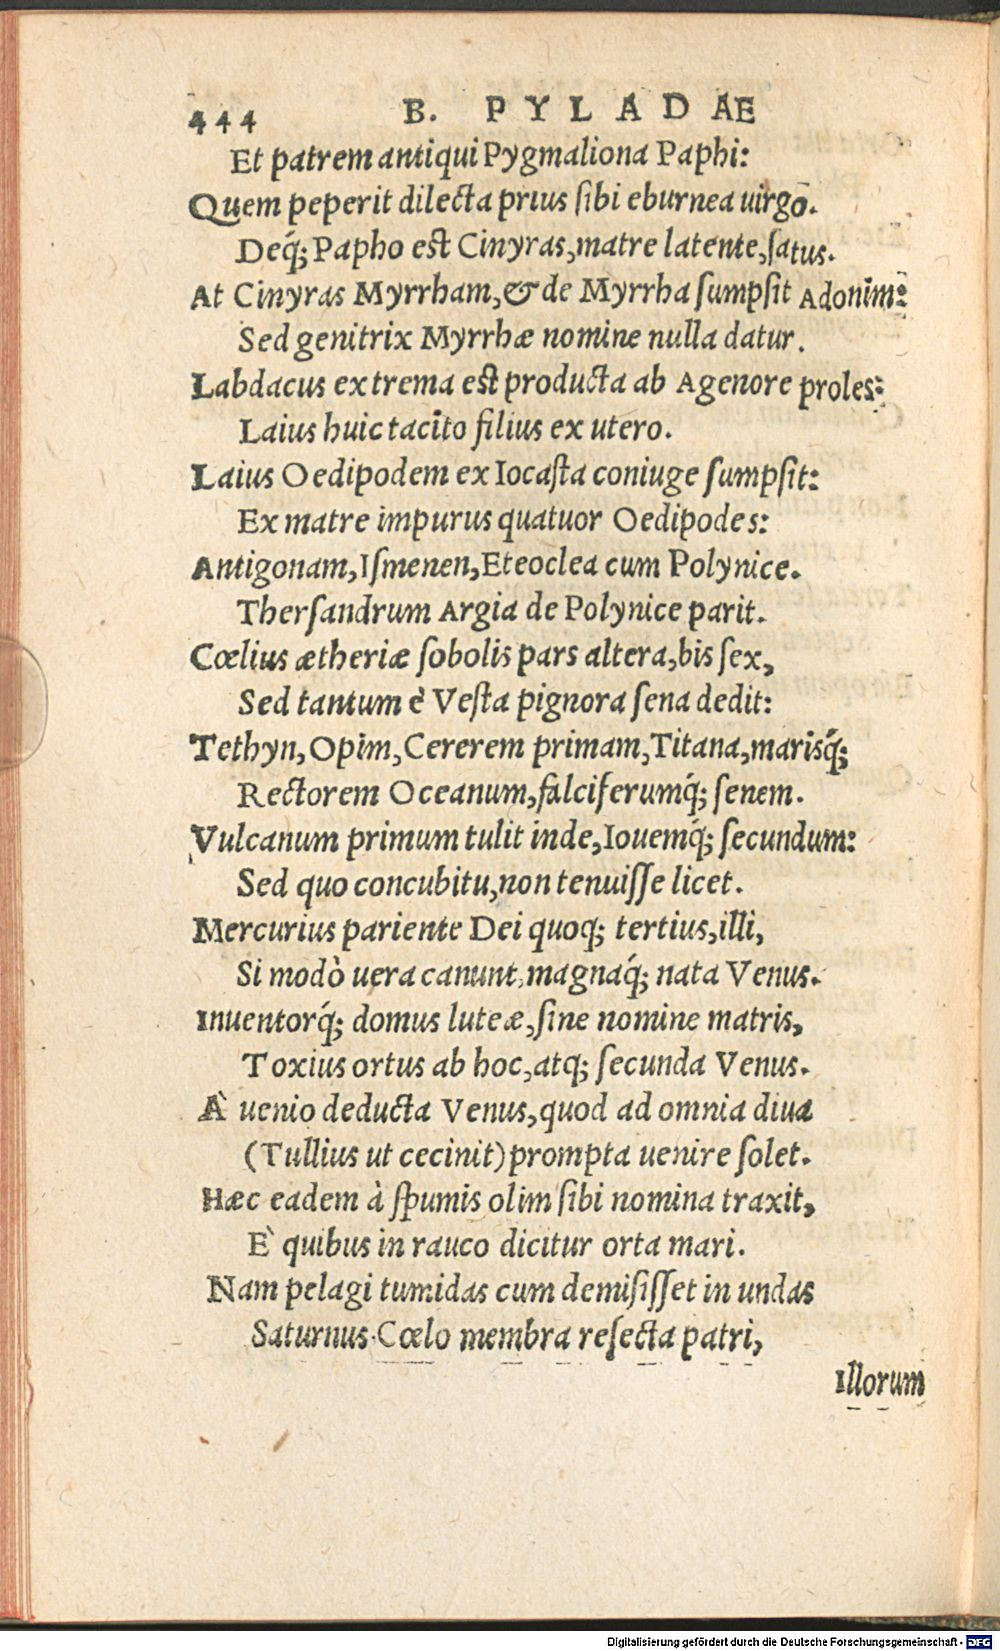 444 B. PYLADAE
Et patrem antiqui Pygmaliona Paphi:
Quem peperit dilecta prius ſibi eburnea uirgo.
Deq́; Papho eſt Cinyras, matre latente, ſatus.
At Cinyras Myrrham, & de Myrrha ſumpſit Adonim:
Sed genitrix Myrrhæ nomine nulla datur.
Labdacus extrema eſt producta ab Agenore proles:
Laius huic tacito filius ex utero.
Laius Oedipodem ex Iocaſta coniuge ſumpſit:
Ex matre impurus quatuor Oedipodes:
Antigonam, Iſmenen, Eteoclea cum Polynice.
Therſandrum Argia de Polynice parit.
Cœlius ætheriæ ſobolis pars altera, bis ſex,
Sed tantum è Veſta pignora ſena dedit:
Tethyn, Opim, Cererem primam, Titana, marisq́;
Rectorem Oceanum, falciferumq́; ſenem.
Vulcanum primum tulit inde, Iouemq́; ſecundum:
Sed quo concubitu, non tenuiſſe licet.
Mercurius pariente Dei quoq; tertius, illi,
Si modò uera canunt, magnaq́; nata Venus.
Inuentorq́; domus luteæ, ſine nomine matris,
Toxius ortus ab hoc, atq; ſecunda Venus.
À uenio deducta Venus, quod ad omnia diua
(Tullius ut cecinit) prompta uenire ſolet.
Hæc eadem à ſpumis olim ſibi nomina traxit,
È quibus in rauco dicitur orta mari.
Nam pelagi tumidas cum demiſiſſet in undas
Saturnus Cœlo membra reſecta patri,
Illorum
Digitalisierung gefördert durch die Deutsche Forschungsgemeinschaft - DFG